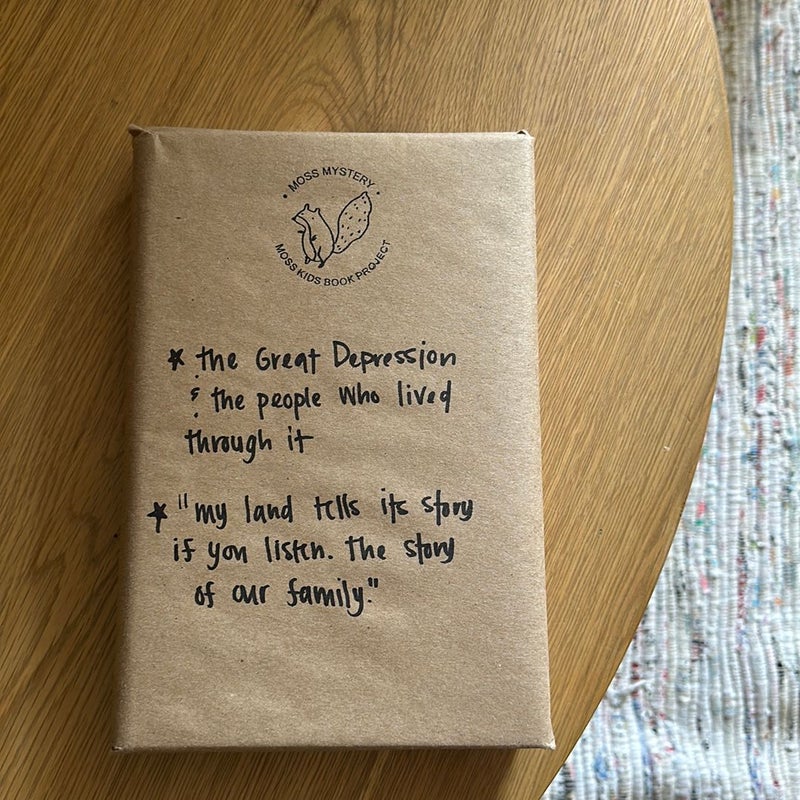 • MOSS MYSTERY •
MOSS KIDS BOOK PROJECT
* the Great Depression
& the people who lived
through it
* "my land tells its story
if you listen. The story
of our family."